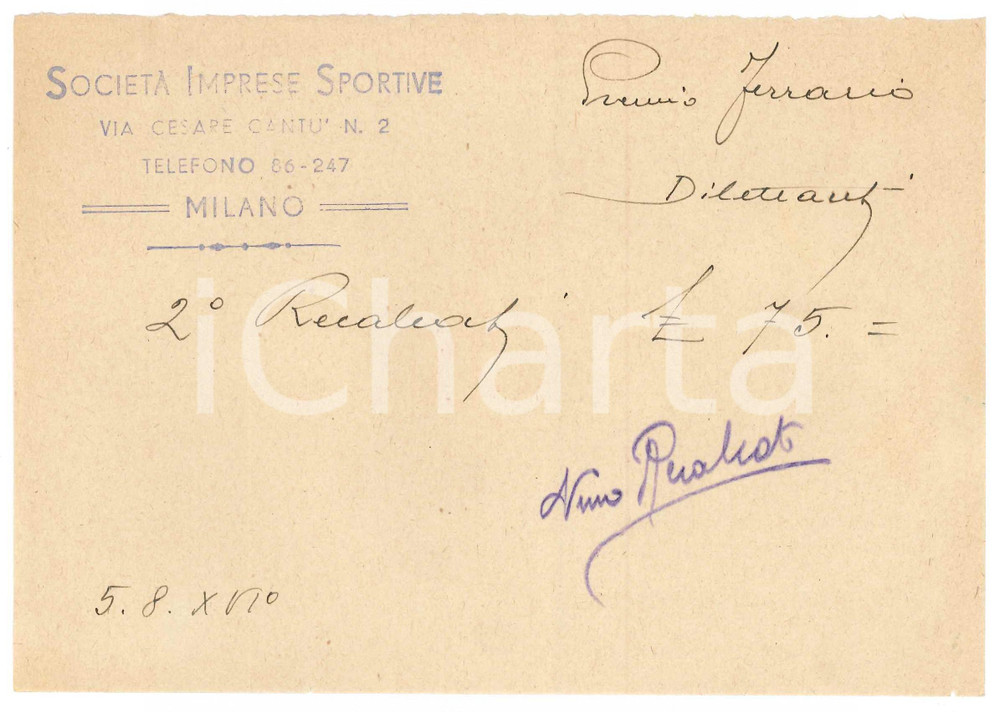 SOCIETÀ IMPRESE SPORTIVE
VIA CESARE CANTU' N. 2
TELEFONO 86-247
MILANO
Premio Ferrario
Dilettanti
2° Recalcati £ 75. =
iCharta
Nino Recalcati
5. 8. XVI°